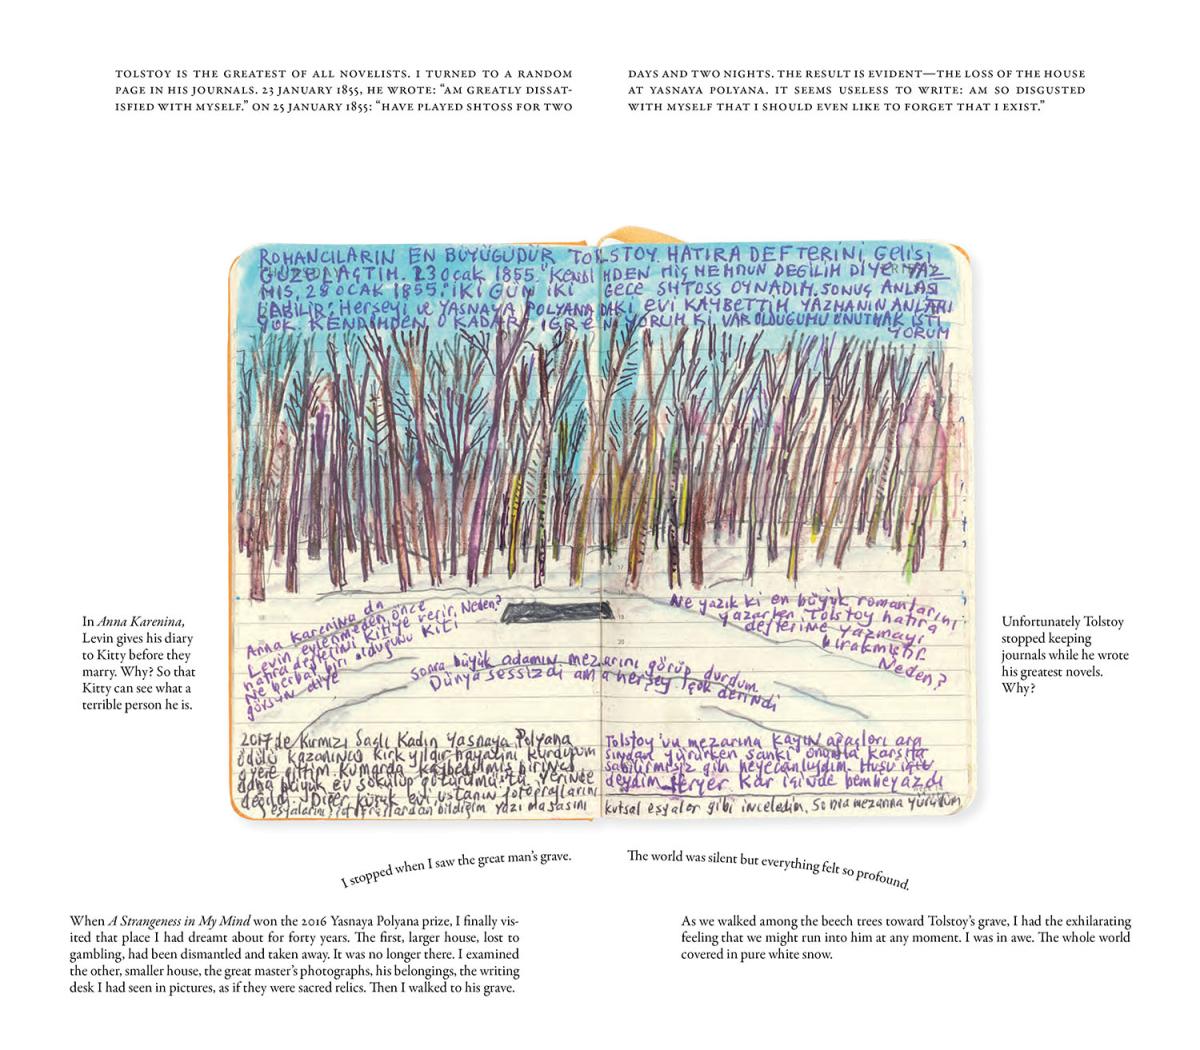 TOLSTOY IS THE GREATEST OF ALL NOVELISTS. I TURNED TO A RANDOM
PAGE IN HIS JOURNALS. 23 JANUARY 1855, HE WROTE: “AM GREATLY DISSAT-
ISFIED WITH MYSELF.” ON 25 JANUARY 1855: “HAVE PLAYED SHTOSS FOR TWO
DAYS AND TWO NIGHTS. THE RESULT IS EVIDENT—THE LOSS OF THE HOUSE
AT YASNAYA POLYANA. IT SEEMS USELESS TO WRITE: AM SO DISGUSTED
WITH MYSELF THAT I SHOULD EVEN LIKE TO FORGET THAT I EXIST.”
ROMANCILARIN EN BÜYÜGÜDÜR TOLSTOY. HATIRA DEFTERiNi GELiSi
GÜZEL AÇTIM. 23 ocak 1855. "KENDiMDEN HiÇ MEMNUN DEGiLiM DiYE YAZ
MIS, 28 OCAK 1855: "iKi GÜN iKi GECE SHTOSS OYNADIM. SONUÇ ANLASI
LABiLiR: Herseyi ve YASNAYA POLYANADAKi EVi KAYBETTiM. YAZMANIN ANLAMI
YOK. KENDiMDEN O KADAR iGRENiYORUM Ki VAR OLDUGUMU UNUTMAK iSTi
YORUM
Anna Karenina da
Levin evlenmeden önce
hatıra defterini Kitiye verir. Neden?
Ne berbat biri olduğunu Kiti
görsün diye
Ne yazık ki en büyük romanlarını
yazarken Tolstoy hatıra
defterine yazmayı
bırakmıştır.
Neden?
Sonra büyük adamın mezarını görüp durdum
Dünya sessizdi ama herşey çok derindi
2017 de Kırmızı Saçlı Kadın Yasnaya Polyana
ödülü kazanınca kırk yıldır hayalini kurduğum
o yere gittim. Kumarda kaybedilmiş birinci
daha büyük ev sökülüp götürülmüştü yerinde
değildi. Diğer küçük evi, ustanın fotoğraflarını
eşyalarını, fotoğraflardan bildiğim yazı masasını
Tolstoy'un mezarına kayın ağaçları ara
sından yürürken sanki onunla karşıla
şabilirmişiz gibi heyecanlıydım. Huşu için
deydim Heryer kar içinde bembeyazdı
kutsal eşyalar gibi inceledim. Sonra mezarına yürüdüm
In Anna Karenina,
Levin gives his diary
to Kitty before they
marry. Why? So that
Kitty can see what a
terrible person he is.
Unfortunately Tolstoy
stopped keeping
journals while he wrote
his greatest novels.
Why?
I stopped when I saw the great man’s grave.
The world was silent but everything felt so profound.
When A Strangeness in My Mind won the 2016 Yasnaya Polyana prize, I finally vis-
ited that place I had dreamt about for forty years. The first, larger house, lost to
gambling, had been dismantled and taken away. It was no longer there. I examined
the other, smaller house, the great master’s photographs, his belongings, the writing
desk I had seen in pictures, as if they were sacred relics. Then I walked to his grave.
As we walked among the beech trees toward Tolstoy’s grave, I had the exhilarating
feeling that we might run into him at any moment. I was in awe. The whole world
covered in pure white snow.